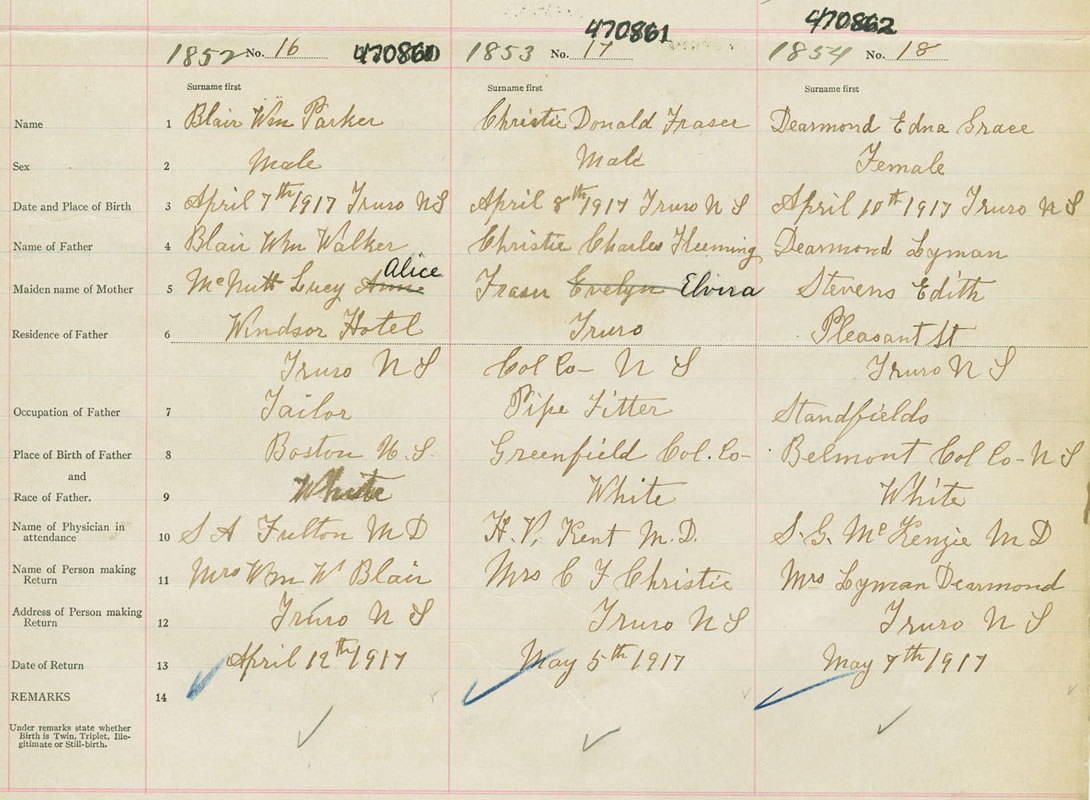 470861 470862
1852 No. 16 470860 1853 No. 17 1854 No. 18
Surname first Surname first Surname first
Name 1 Blair Wm Parker Christie Donald Fraser Dearmond Edna Grace
Sex 2 Male Male Female
Date and Place of Birth 3 April 7th 1917 Truro NS April 8th 1917 Truro N S April 10th 1917 Truro N S
Name of Father 4 Blair Wm Walker Christie Charles Fleeming Dearmond Lyman
Alice
Maiden name of Mother 5 McNutt Lucy Anne Fraser Evelyn Elvira Stevens Edith
Residence of Father 6 Windsor Hotel Truro Pleasant St
Truro N S Col Co- N S Truro N S
Occupation of Father 7 Tailor Pipe Fitter Standfields
Place of Birth of Father 8 Boston U.S. Greenfield Col. Co- Belmont Col Co- N S
and
Race of Father. 9 White White White
Name of Physician in
attendance 10 S A Fulton M D H. V. Kent M.D. S. G. McKenzie M D
Name of Person making
Return 11 Mrs Wm W Blair Mrs C F Christie Mrs Lyman Dearmond
Address of Person making
Return 12 Truro N S Truro N S Truro N S
Date of Return 13 April 12th 1917 May 5th 1917 May 7th 1917
REMARKS 14
Under remarks state whether
Birth is Twin, Triplet, Ille-
gitimate or Still-birth.